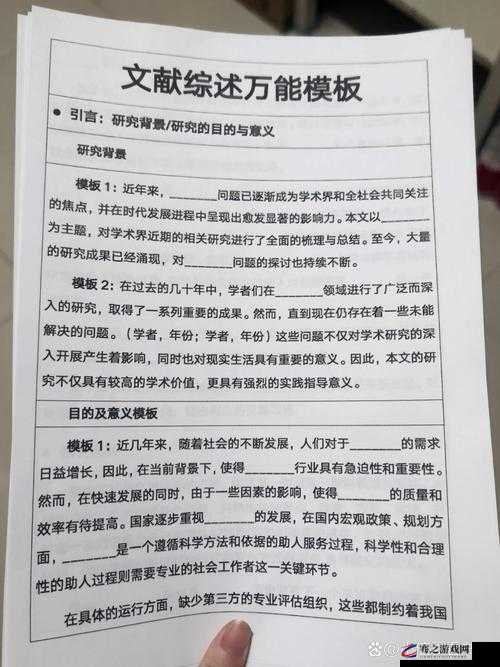 文献综述万能模板
● 引言：研究背景/研究的目的与意义
研究背景
模板 1：近年来，________问题已逐渐成为学术界和全社会共同关注
的焦点，并在时代发展进程中呈现出愈发显著的影响力。本文以________
为主题，对学术界近期的相关研究进行了全面的梳理与总结。至今，大量
的研究成果已经涌现，对________问题的探讨也持续不断。
模板 2：在过去的几十年中，学者们在________领域进行了广泛而深
入的研究，取得了一系列重要的成果。然而，直到现在仍存在着一些未能
解决的问题。（学者，年份；学者，年份）这些问题不仅对学术研究的深
入开展产生着影响，同时也对现实生活具有重要的意义。因此，本文的研
究不仅具有较高的学术价值，更具有强烈的实践指导意义。
目的及意义模板
模板 1：近几年来，随着社会的不断发展，人们对于________的需求
日益增长，因此，在当前背景下，使得________行业具有急迫性和重要性。
然而，在快速发展的同时，由于一些因素的影响，使得________的质量和
效率有待提高。国家逐步重视________的发展，在国内宏观政策、规划方
面，________是一个遵循科学方法和依据的助人服务过程，科学性和合理
性的助人过程则需要专业的社会工作者这一关键环节。
在具体的运行方面，缺少第三方的专业评估组织，这些都制约着我国
骞之游戏网